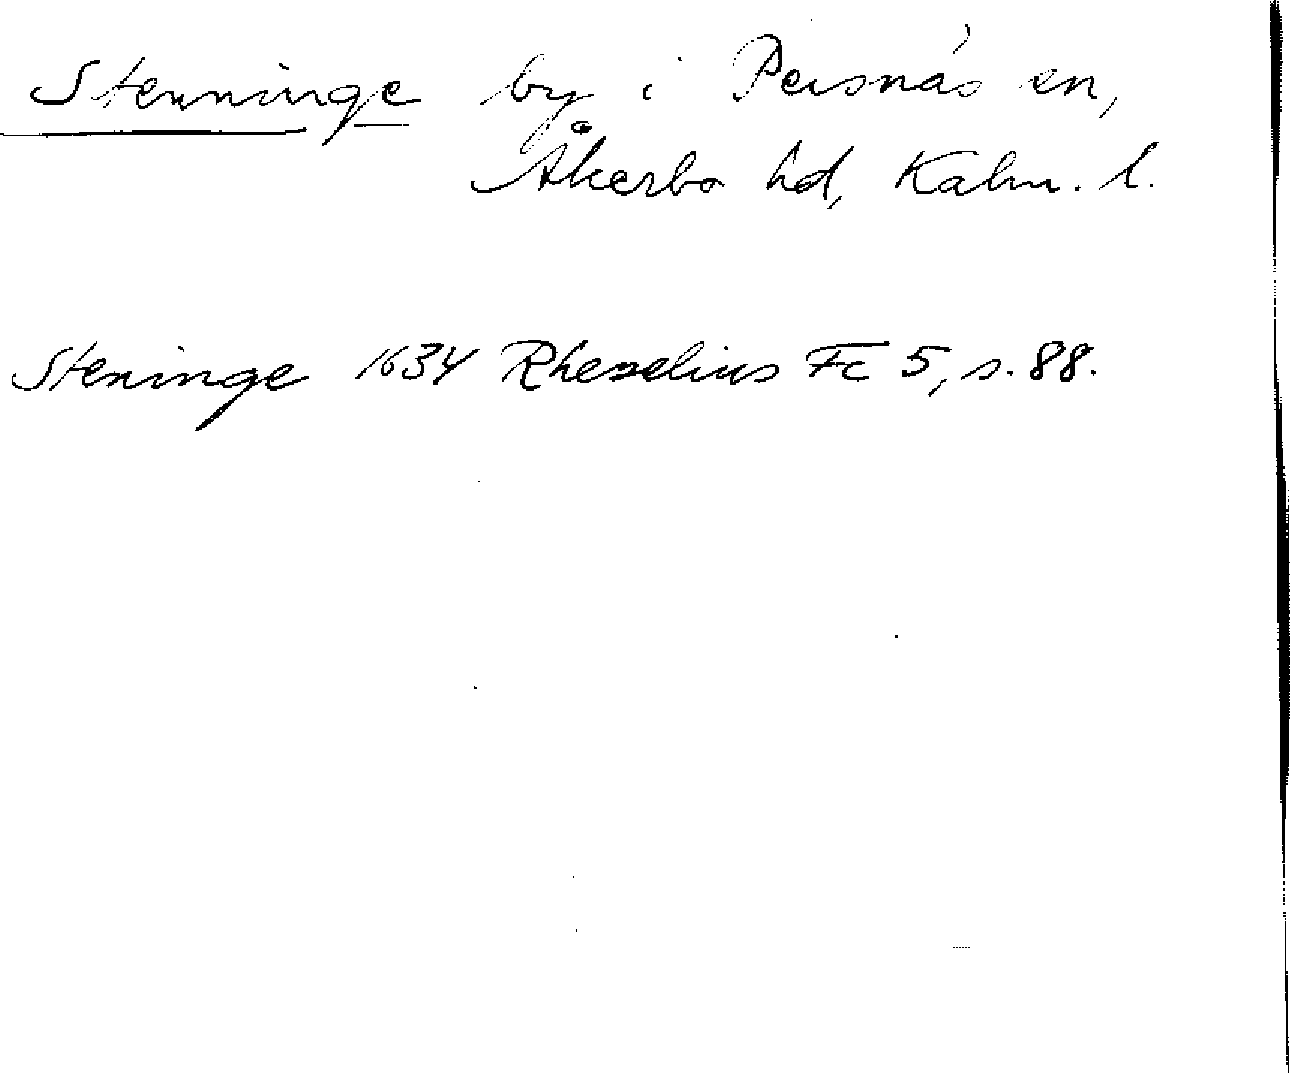 Stenninge by i Persnäs sn,
Åkerbo hd, Kalm. l.
Steninge 1634 Rhezelius Fc 5, s. 88.